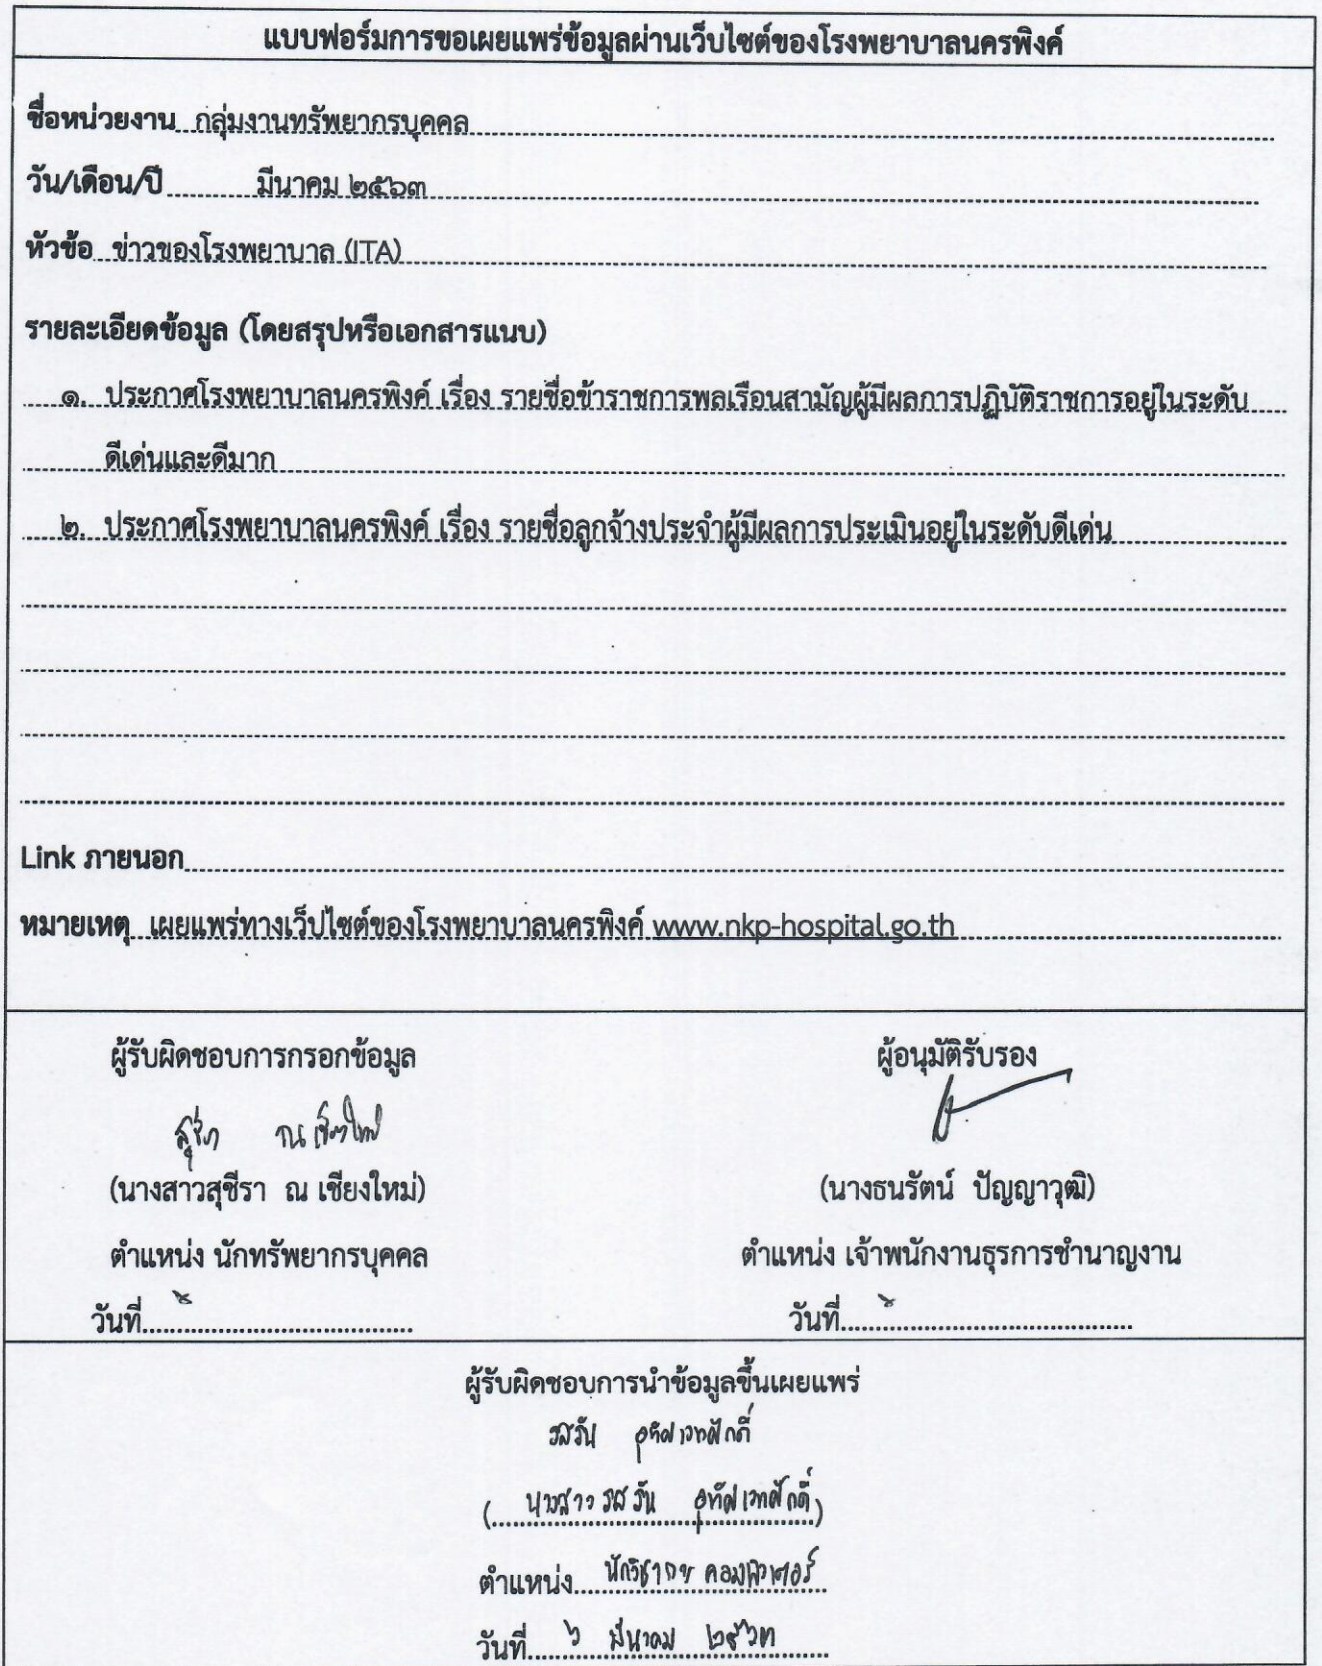 แบบฟอร์มการขอเผยแพร่ข้อมูลผ่านเว็บไซต์ของโรงพยาบาลนครพิงค์
ชื่อหน่วยงาน กลุ่มงานทรัพยากรบุคคล
วัน/เดือน/ปี มีนาคม ๒๕๖๓
หัวข้อ ข่าวของโรงพยาบาล (ITA)
รายละเอียดข้อมูล (โดยสรุปหรือเอกสารแนบ)
๑. ประกาศโรงพยาบาลนครพิงค์ เรื่อง รายชื่อข้าราชการพลเรือนสามัญผู้มีผลการปฏิบัติราชการอยู่ในระดับ
ดีเด่นและดีมาก
๒. ประกาศโรงพยาบาลนครพิงค์ เรื่อง รายชื่อลูกจ้างประจำผู้มีผลการประเมินอยู่ในระดับดีเด่น
Link ภายนอก
หมายเหตุ เผยแพร่ทางเว็ปไซต์ของโรงพยาบาลนครพิงค์ www.nkp-hospital.go.th
ผู้รับผิดชอบการกรอกข้อมูล ผู้อนุมัติรับรอง
สุชีรา ณ เชียงใหม่
(นางสาวสุชีรา ณ เชียงใหม่) (นางธนรัตน์ ปัญญาวุฒิ)
ตำแหน่ง นักทรัพยากรบุคคล ตำแหน่ง เจ้าพนักงานธุรการชำนาญงาน
วันที่ วันที่
ผู้รับผิดชอบการนำข้อมูลขึ้นเผยแพร่
รสริน
(นางสาวรสริน)
ตำแหน่ง นักวิชาการคอมพิวเตอร์
วันที่ ๖ มีนาคม ๒๕๖๓